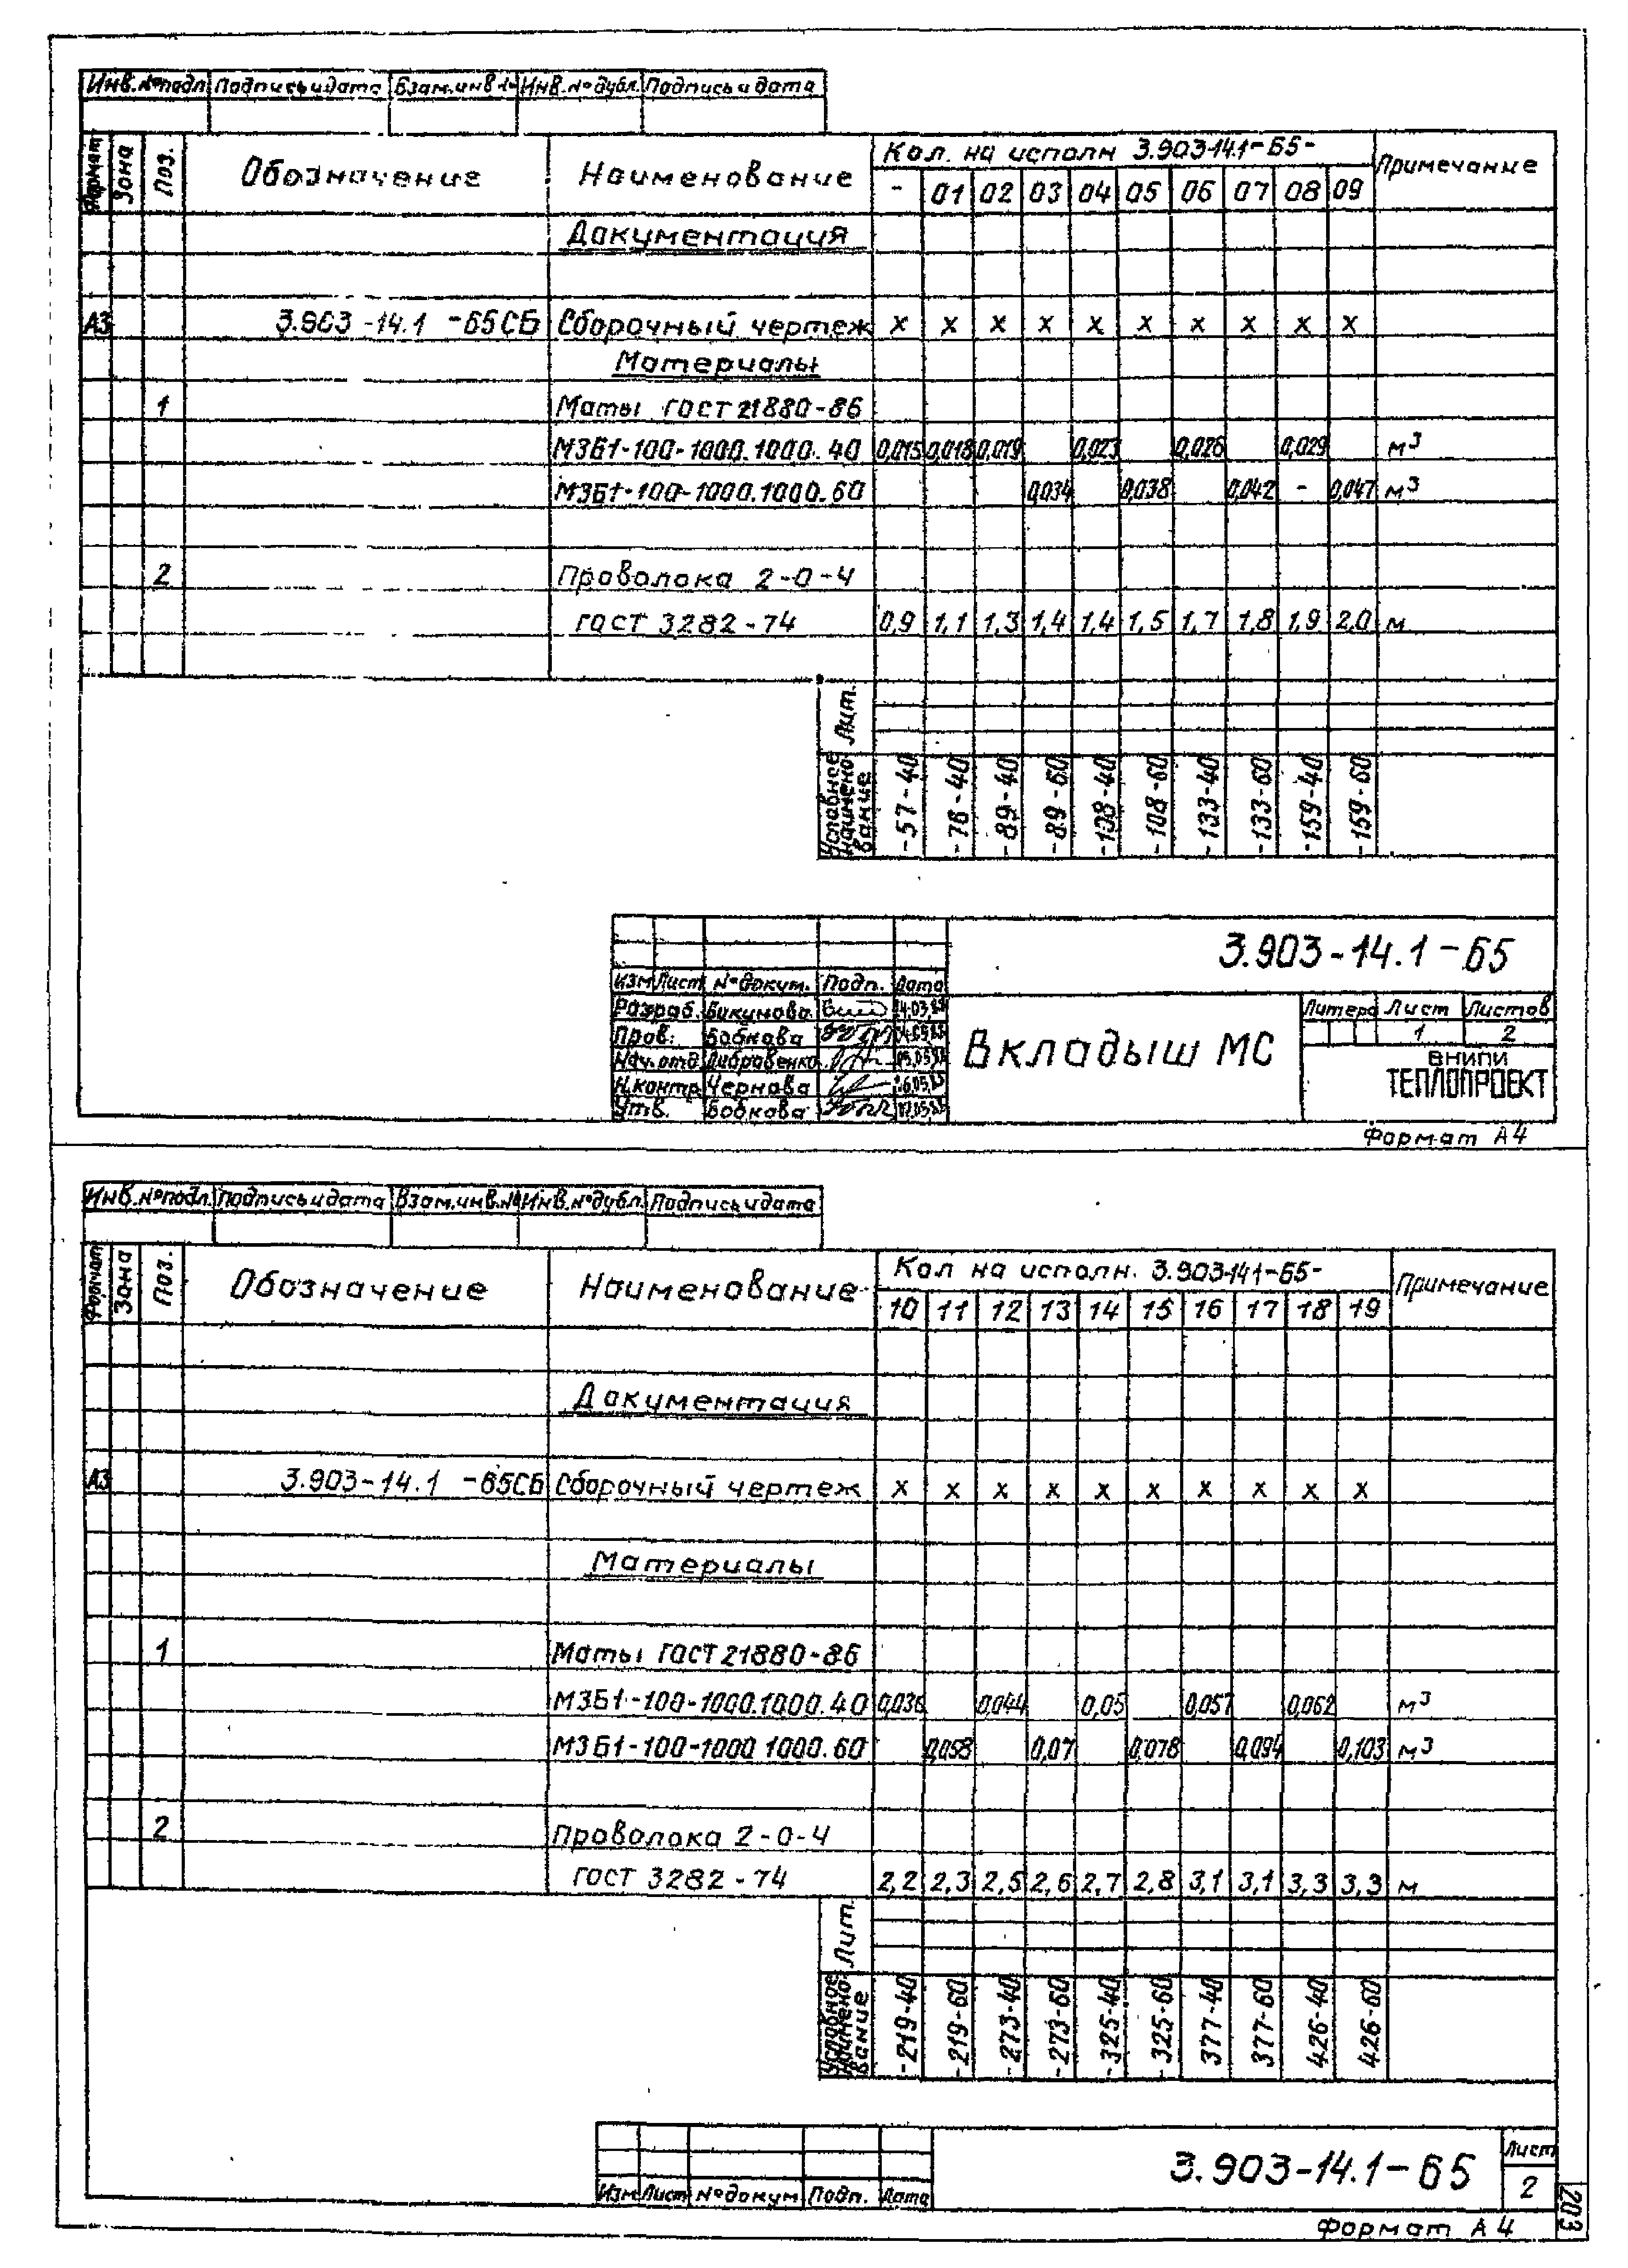 Инв.№подл Подпись и дата Взам.инв № Инв.№ дубл. Подпись и дата
Формат Зона Поз. Обозначение Наименование Кол. на исполн 3.903-14.1-65- Примечание
- 01 02 03 04 05 06 07 08 09
Документация
А3 3.903-14.1 -65СБ Сборочный чертеж х х х х х х х х х х
Материалы
1 Маты ГОСТ 21880-86
МЗБ1-100-1000.1000.40 0,015 0,018 0,019 0,023 0,026 0,029 м3
МЗБ1-100-1000.1000.60 0,034 0,038 0,042 - 0,047 м3
2 Проволока 2-0-4
ГОСТ 3282-74 0,9 1,1 1,3 1,4 1,4 1,5 1,7 1,8 1,9 2,0 м
Лит.
Условное наименование -57-40 -76-40 -89-40 -89-60 -108-40 -108-60 -133-40 -133-60 -159-40 -159-60
3.903-14.1-65
Изм Лист № докум. Подп. Дата
Разраб. Бикунова
Пров. Бобкова
Нач.отд
Н.контр Чернова
Утв. Бобкова
Вкладыш МС
Литера Лист Листов
1 2
ВНИПИ
ТЕПЛОПРОЕКТ
Формат А4
Инв.№подл. Подпись и дата Взам.инв.№ Инв.№дубл. Подпись и дата
Формат Зона Поз. Обозначение Наименование Кол на исполн. 3.903-14.1-65- Примечание
10 11 12 13 14 15 16 17 18 19
Документация
А3 3.903-14.1 -65СБ Сборочный чертеж х х х х х х х х х х
Материалы
1 Маты ГОСТ 21880-86
МЗБ1-100-1000.1000.40 0,036 0,044 0,05 0,057 0,062 м3
МЗБ1-100-1000 1000.60 0,058 0,07 0,078 0,094 0,103 м3
2 Проволока 2-0-4
ГОСТ 3282-74 2,2 2,3 2,5 2,6 2,7 2,8 3,1 3,1 3,3 3,3 м
Лит.
Условное наименование -219-40 -219-60 -273-40 -273-60 -325-40 -325-60 377-40 377-60 426-40 426-60
3.903-14.1-65
Лист
2
Изм Лист № докум Подп. Дата
Формат А4
1203